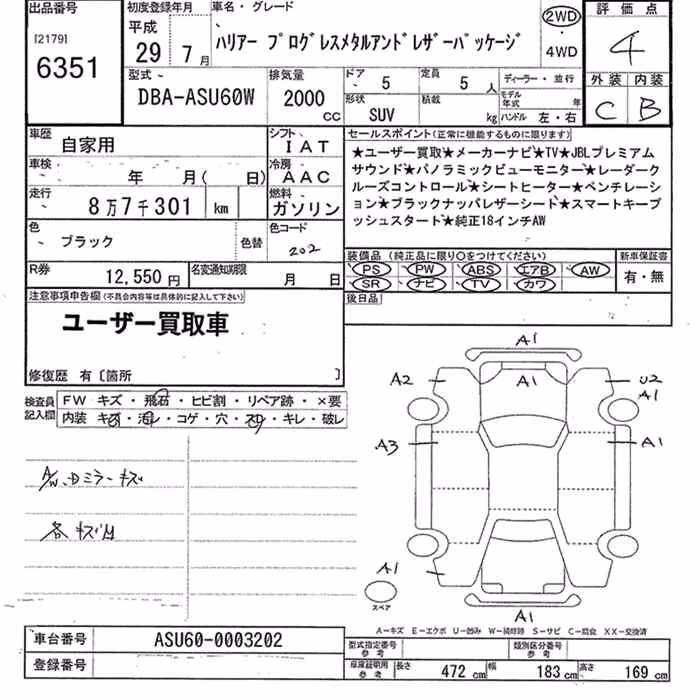 出品番号
[2179]
6351
初度登録年月
平成
29年 7月
車名・グレード
ハリアー プログレスメタルアンドレザーパッケージ
2WD
・
4WD
評価点
4
外装 内装
C B
型式
DBA-ASU60W
排気量
2000 CC
ドア 5
定員 5人
形状 SUV
積載 kg
ディーラー・並行
モデル年式 年
ハンドル 左・右
車歴 自家用
シフト IAT
車検 年 月( 日)
冷房 AAC
走行 8万7千301 km
燃料 ガソリン
色 ブラック
色替
色コード 202
R券 12,550円
名変通知期限 月 日
セールスポイント(正常に機能するものに限ります)
★ユーザー買取★メーカーナビ★TV★JBLプレミアム
サウンド★パノラミックビューモニター★レーダーク
ルーズコントロール★シートヒーター★ベンチレーシ
ョン★ブラックナッパレザーシート★スマートキープ
ッシュスタート★純正18インチAW
装備品(純正品に限り○をつけてください)
PS PW ABS エアB AW
SR ナビ TV カワ
新車保証書
有・無
後日品
注意事項申告欄(不具合内容等は具体的に記入して下さい)
ユーザー買取車
修復歴 有〔箇所 〕
検査員
記入欄
FW キズ・飛石・ヒビ割・リペア跡・×要
内装 キズ・汚レ・コゲ・穴・スリ・キレ・破レ
A/W、Dミラーキズ
各キズ凹
A1
A2
A1
U2
A1
A3
A1
A1
A1
スペア
A-キズ E-エクボ U-凹み W-補修跡 S-サビ C-腐食 XX-交換済
車台番号 ASU60-0003202
登録番号
型式指定番号 参考
類別区分番号 参考
車庫証明用 参考
長さ 472 cm
幅 183 cm
高さ 169 cm